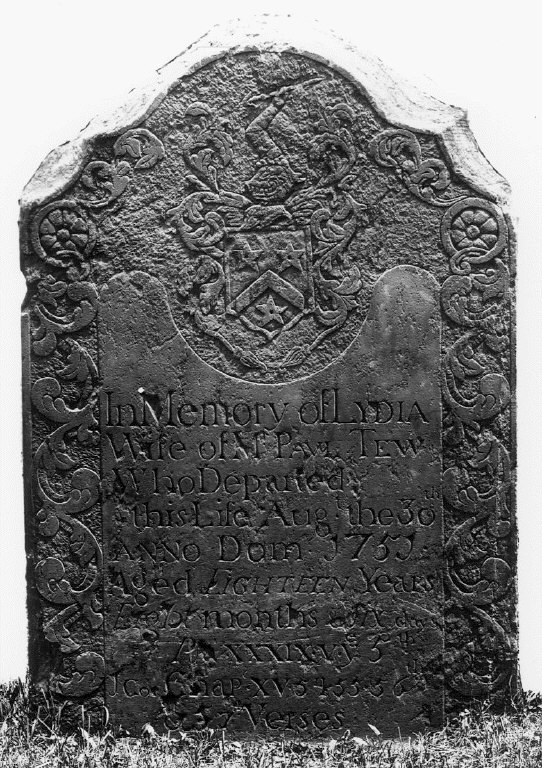 In Memory of LYDIA
Wife of Mr PAUL TEW
Who Departed
this Life Augt the 30th
ANNO Dom 1751
Aged EIGHTEEN Years
months
Ps XXXIX Vy 5th
1 Cor Chap XV 54 55 56th
& 57 Verses